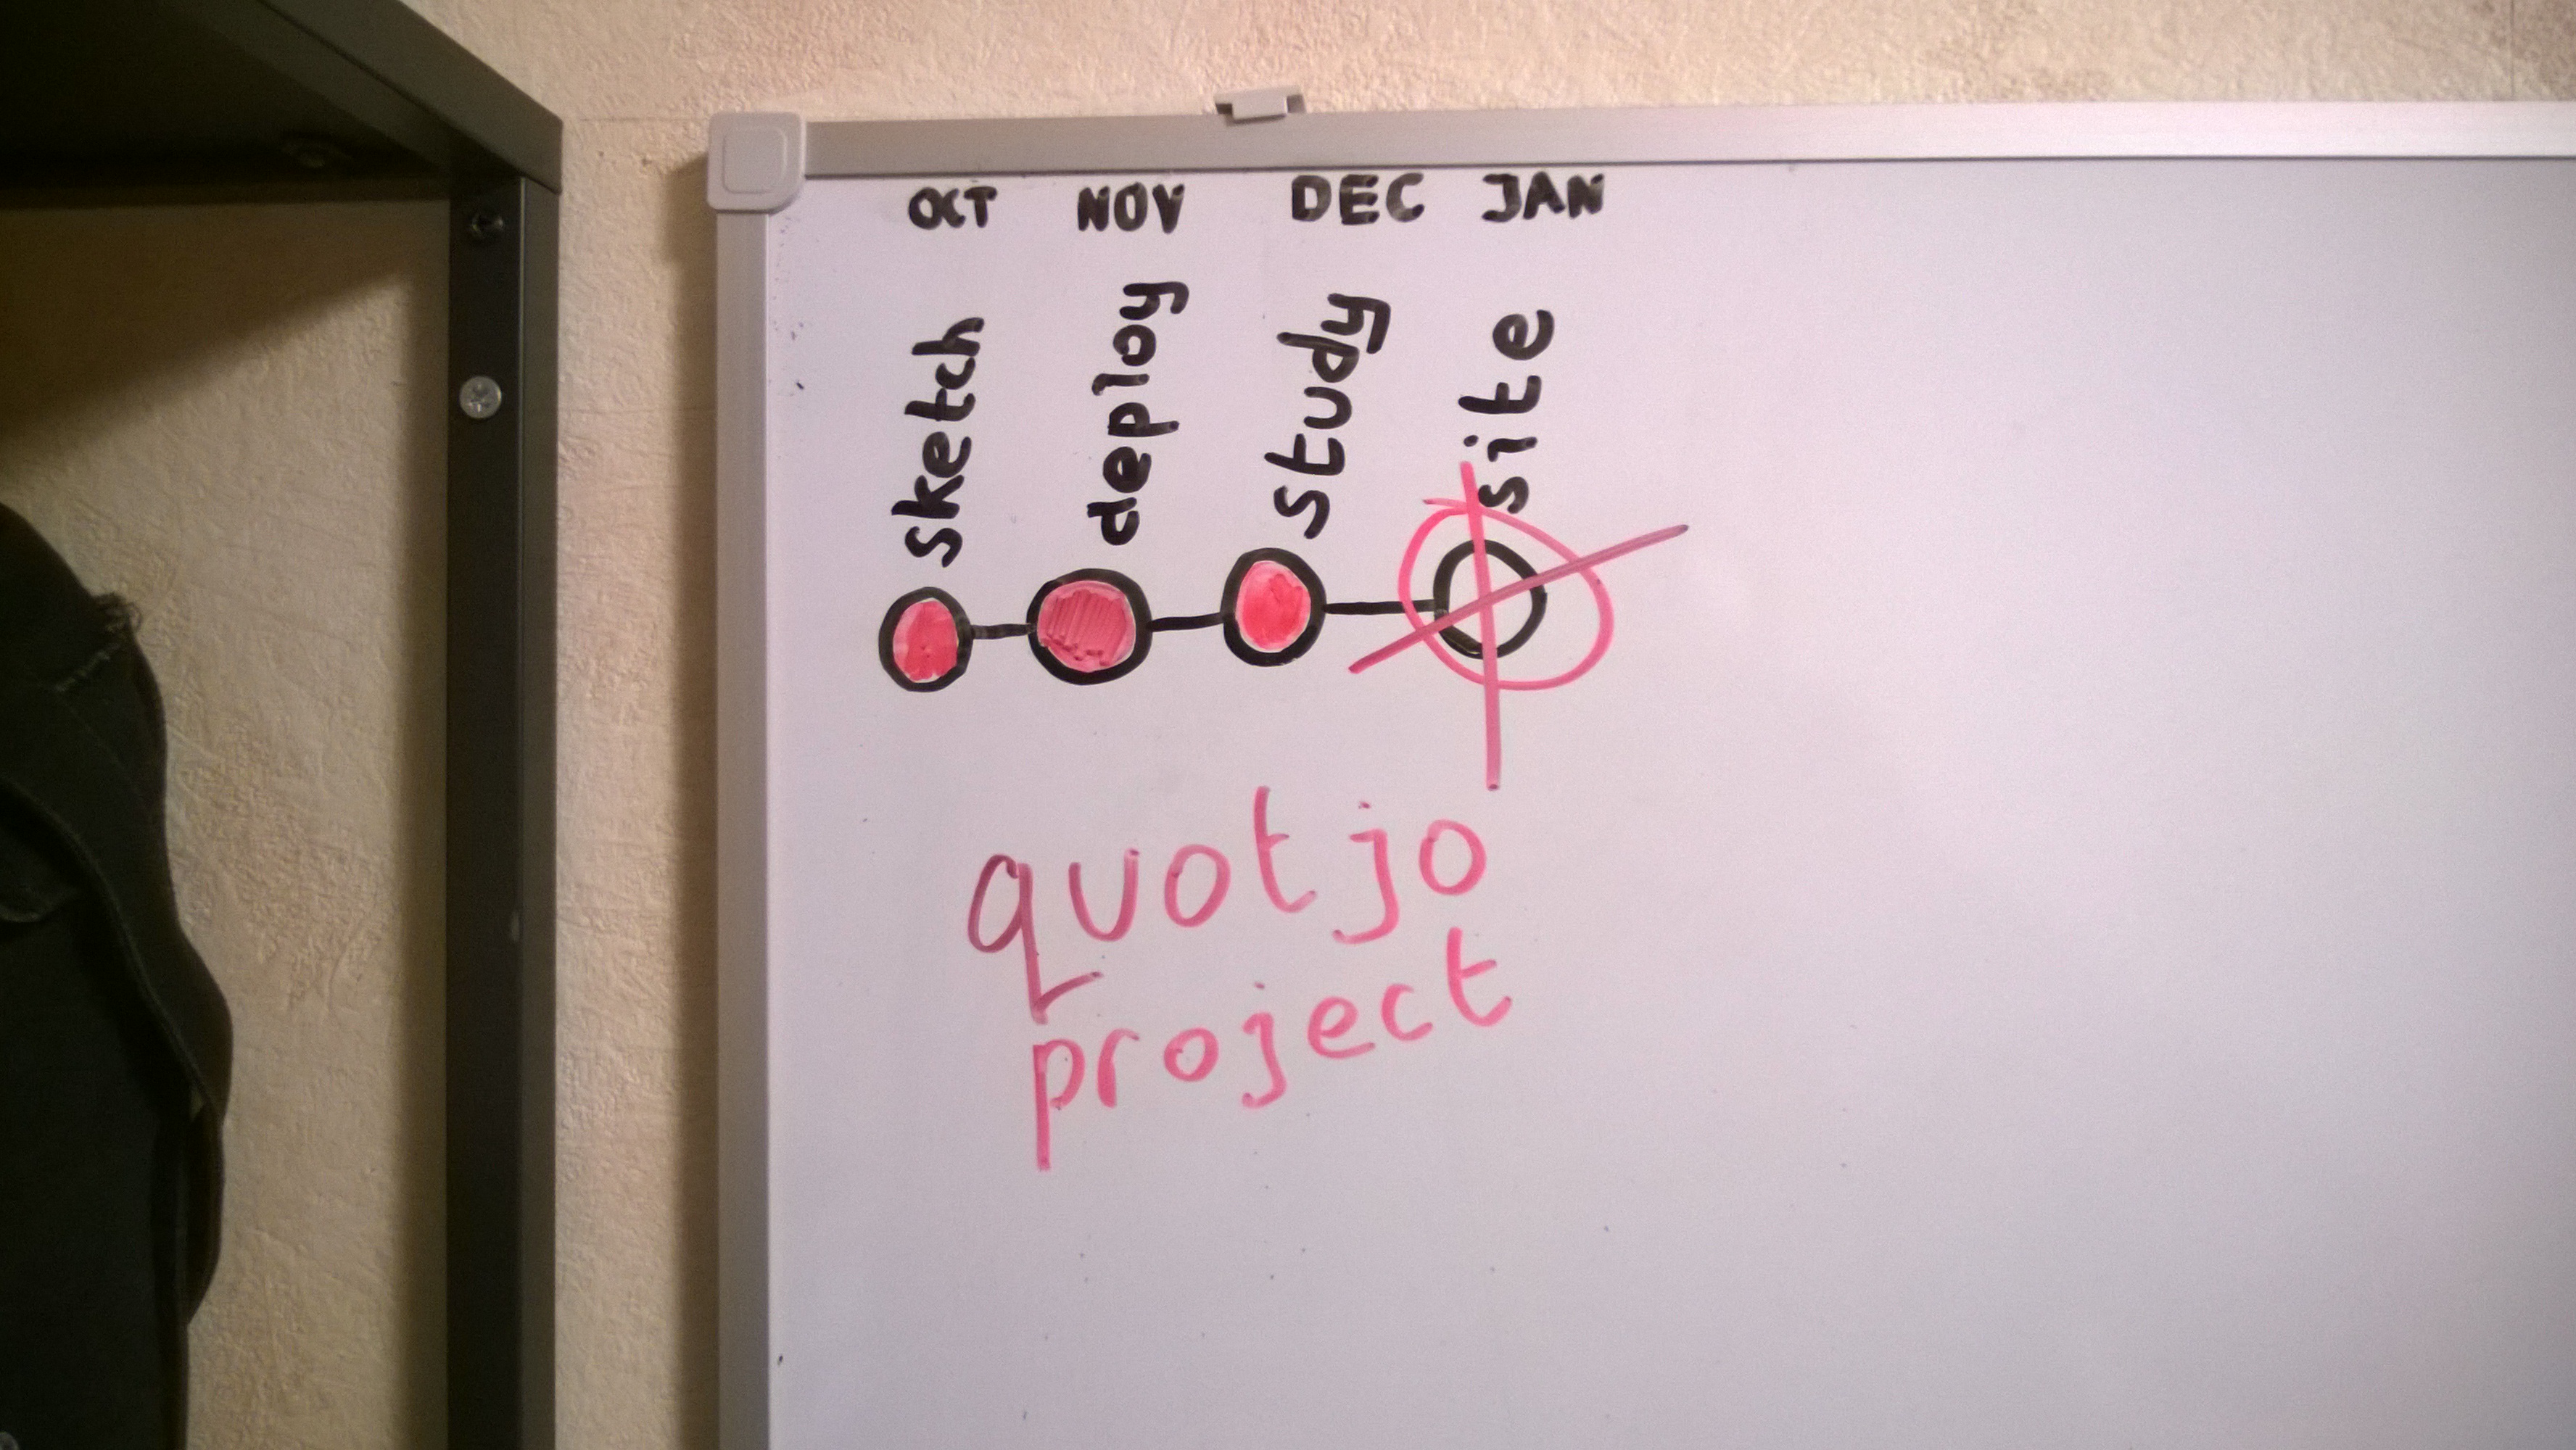 OCT NOV DEC JAN
sketch deploy study site
quotjo
project